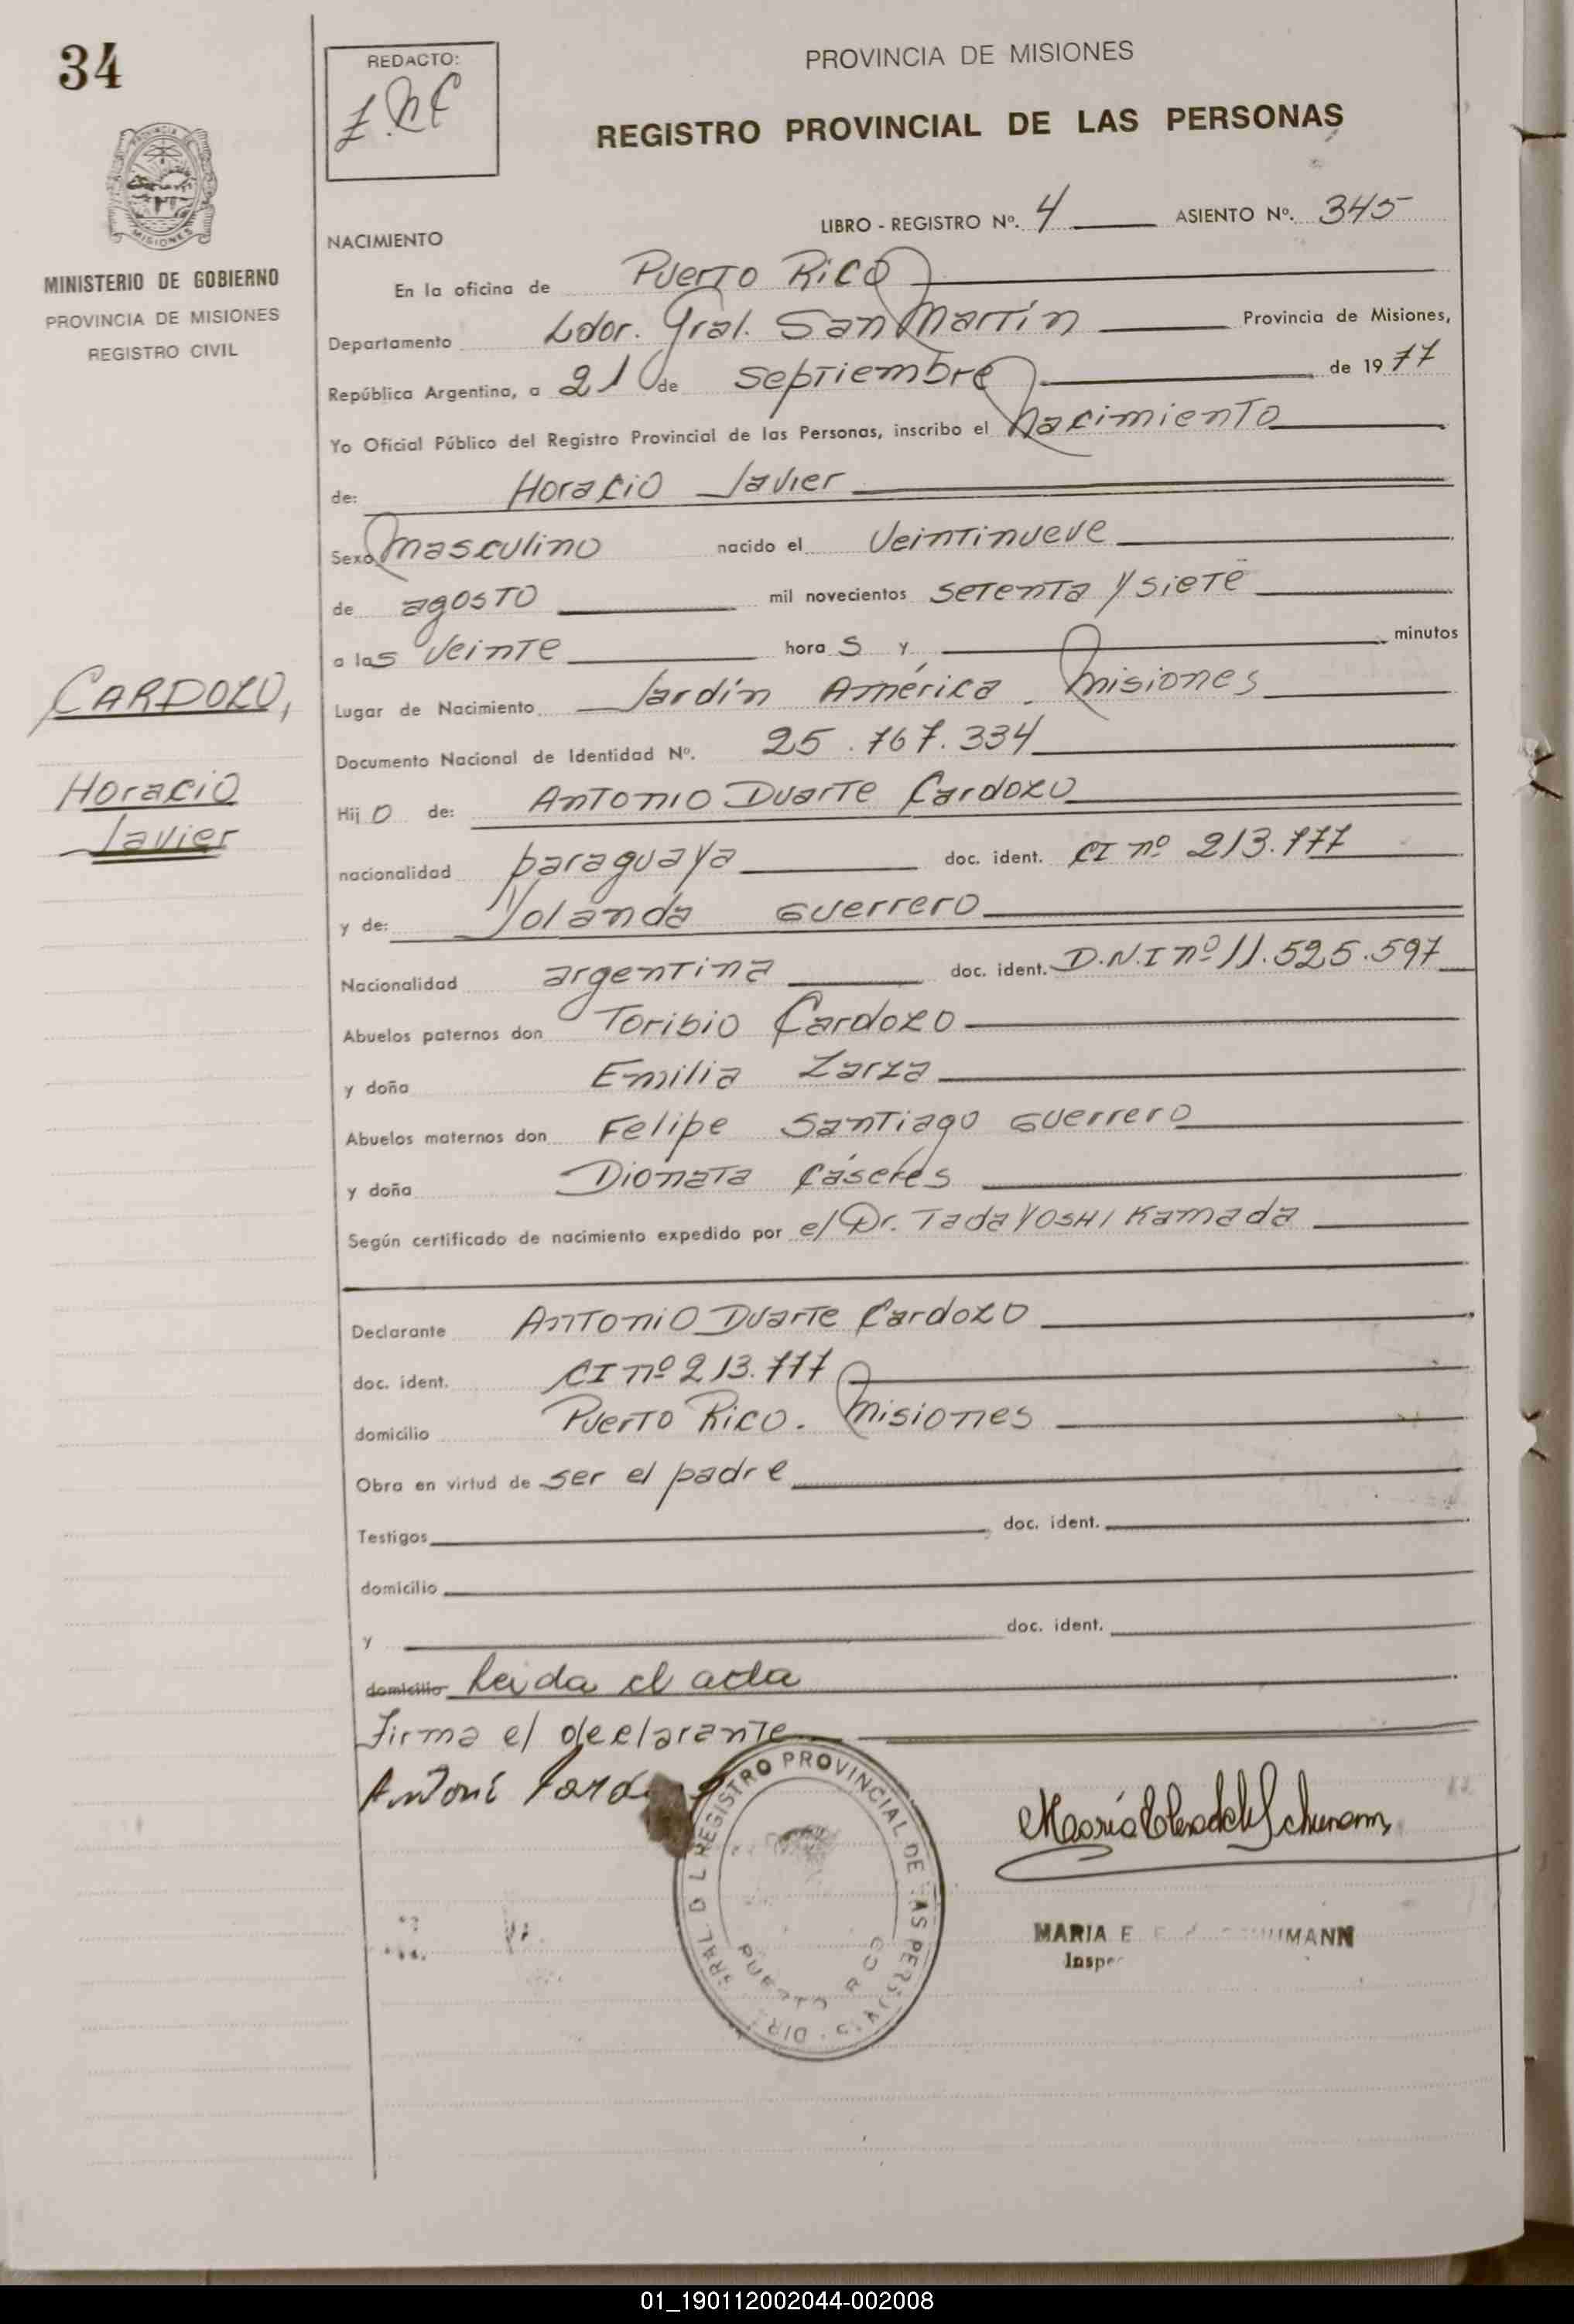 34
PROVINCIA DE MISIONES
MINISTERIO DE GOBIERNO
PROVINCIA DE MISIONES
REGISTRO CIVIL
CARDOZO,
Horacio
Javier
REDACTO:
PROVINCIA DE MISIONES
REGISTRO PROVINCIAL DE LAS PERSONAS
LIBRO - REGISTRO Nº. 4 ASIENTO Nº. 345
NACIMIENTO
En la oficina de Puerto Rico
Departamento Ldor. Gral. San Martín Provincia de Misiones,
República Argentina, a 21 de septiembre de 1977
Yo Oficial Público del Registro Provincial de las Personas, inscribo el nacimiento
de: Horacio Javier
Sexo masculino nacido el Veintinueve
de agosto mil novecientos setenta y siete
a las veinte hora s y minutos
Lugar de Nacimiento Jardín América. Misiones
Documento Nacional de Identidad Nº. 25.767.334
Hij o de: Antonio Duarte Cardozo
nacionalidad paraguaya doc. ident. CI nº 213.777
y de: Yolanda Guerrero
Nacionalidad argentina doc. ident. D.N.I nº 11.525.597
Abuelos paternos don Toribio Cardozo
y doña Emilia Zarza
Abuelos maternos don Felipe Santiago Guerrero
y doña Dionata Cáseres
Según certificado de nacimiento expedido por el Dr. Tadayoshi Kamada
Declarante Antonio Duarte Cardozo
doc. ident. CI nº 213.777
domicilio Puerto Rico. Misiones
Obra en virtud de ser el padre
Testigos doc. ident.
domicilio
y doc. ident.
domicilio Leida el acta
Firma el declarante
REGISTRO PROVINCIAL DE LAS PERSONAS
PUERTO RICO
MARIA E
Inspe
01_190112002044-002008